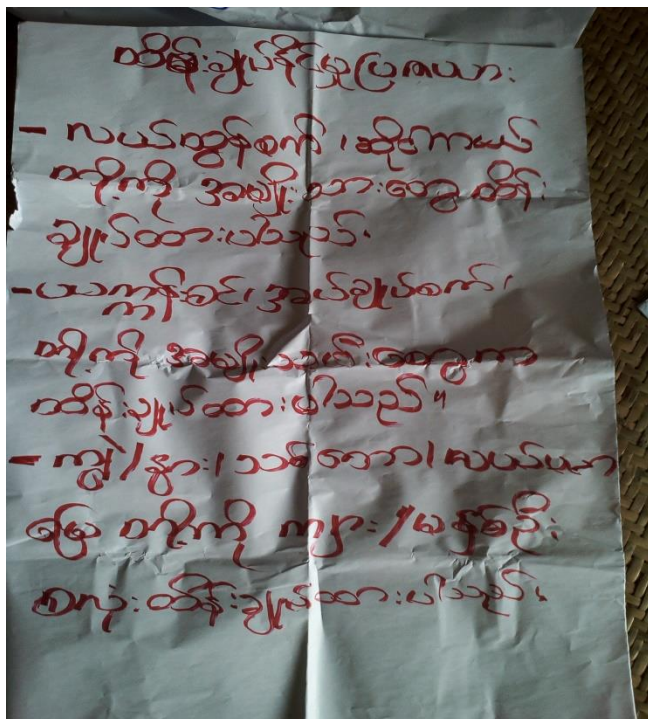 ထိန်းချုပ်နိုင်မှုပြဿနား
- လယ်ထွန်စက်၊ ဆိုင်ကယ်
တို့ကို အမျိုးသားတွေ ထိန်း
ချုပ်ထားပါသည်။
- ပယက္ကန်းစင်၊ အပ်ချုပ်စက်၊
တို့ကို အမျိုးသမီးတွေက
ထိန်းချုပ်ထားပါသည်။
- ကျွဲ၊ နွား၊ သစ်တော၊ လယ်ယာ
မြေ တို့ကို ကျား/မ နှစ်ဦး
စလုံး ထိန်းချုပ်ထားပါသည်။